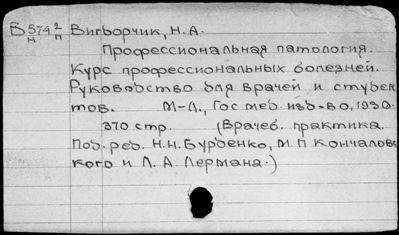 В 574 2 Вигборчик, Н.А.
н п
Профессиональная патология.
Курс профессиональных болезней.
Руководство для врачей и студен
тов. М-Л., Гос мед. изд-во, 1930.
370 стр. (Врачеб. практика.
Под. ред. Н.Н. Бурденко, М.П Кончалов
ского и Л.А. Лермана.)